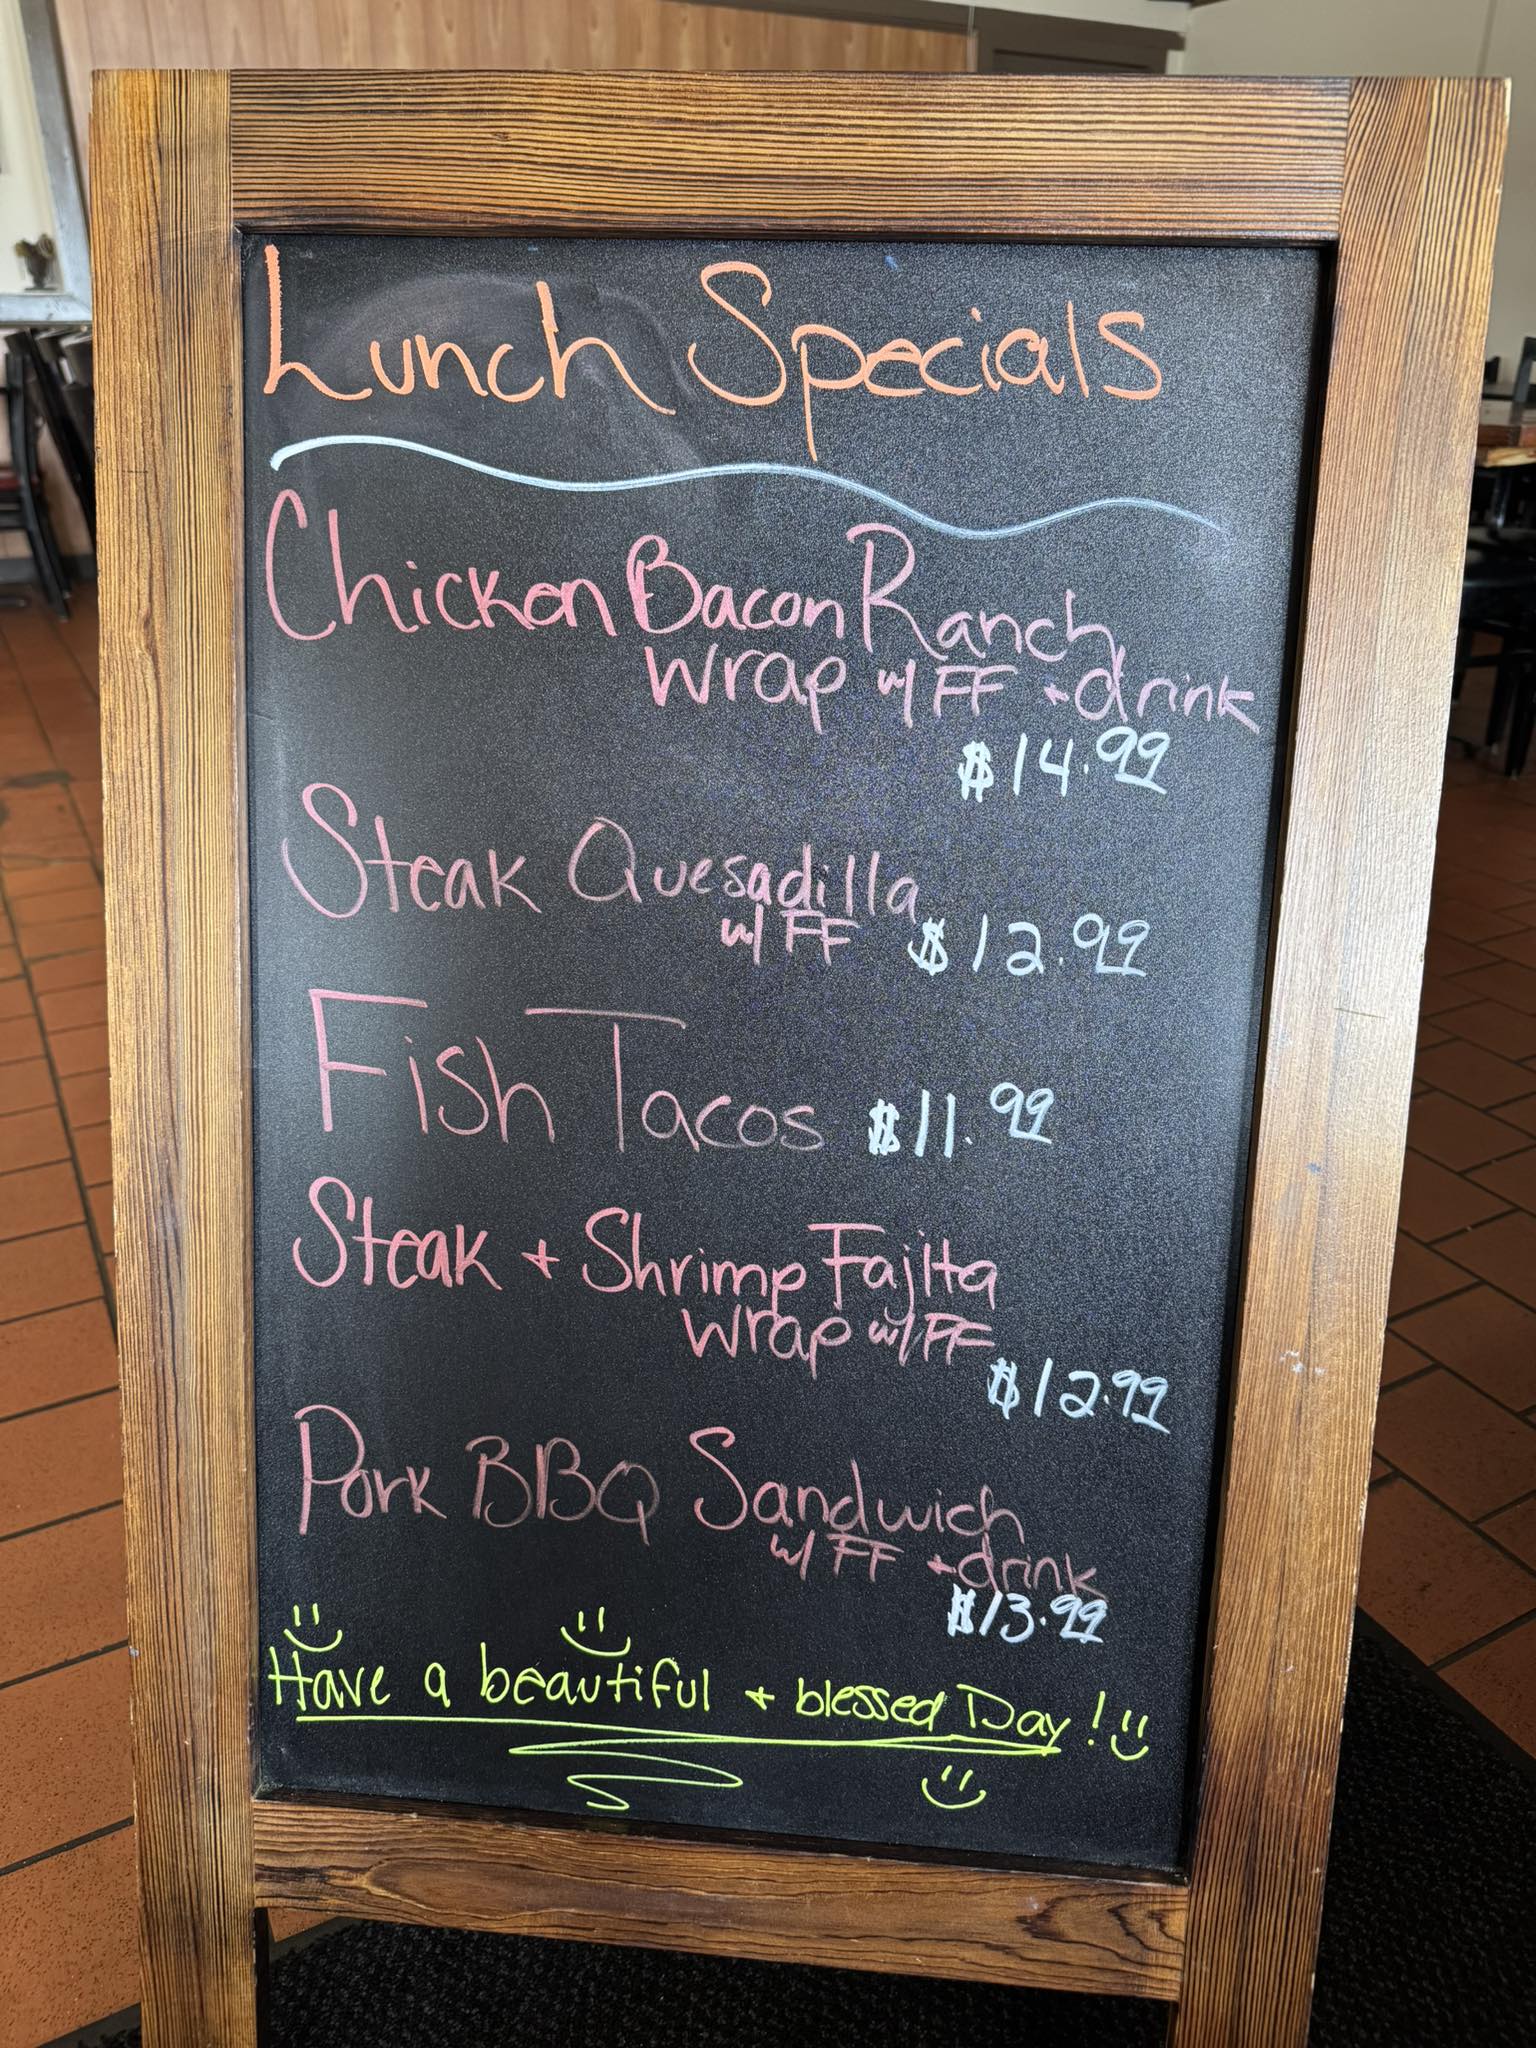 Lunch Specials
Chicken Bacon Ranch
wrap w/ FF + drink
$14.99
Steak Quesadilla
w/ FF $12.99
Fish Tacos $11.99
Steak + Shrimp Fajita
wrap w/ FF
$12.99
Pork BBQ Sandwich
w/ FF + drink
$13.99
Have a beautiful + blessed Day!